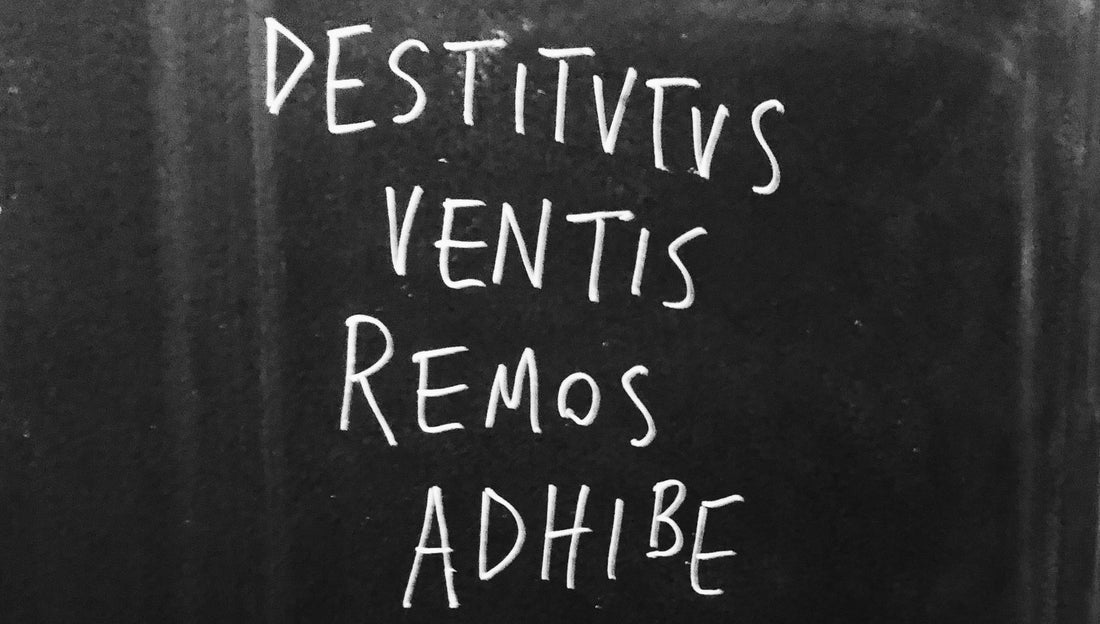 DESTITVTVS
VENTIS
REMOS
ADHIBE